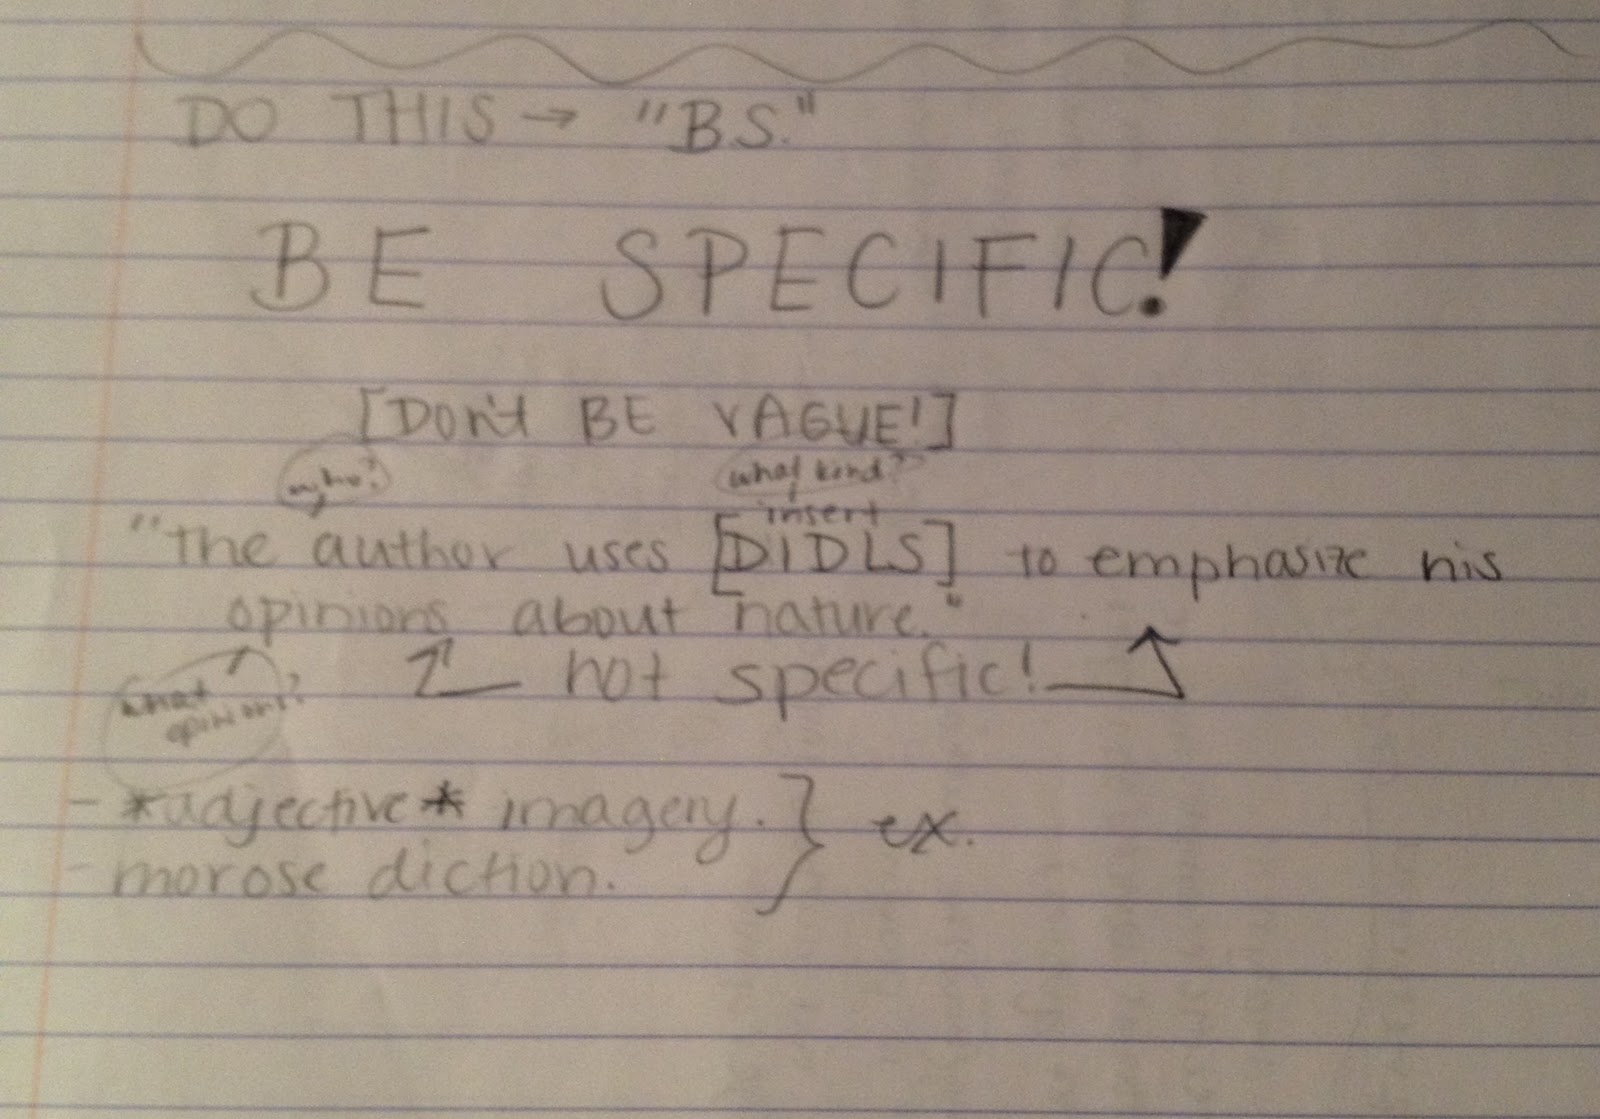 DO THIS → "B.S."
BE SPECIFIC!
[DON't BE VAGUE!]
who? what kind?
insert
"the author uses [DIDLS] to emphasize his
opinions about nature."
not specific!
what
opinions?
- *adjective* imagery. } ex.
- morose diction.